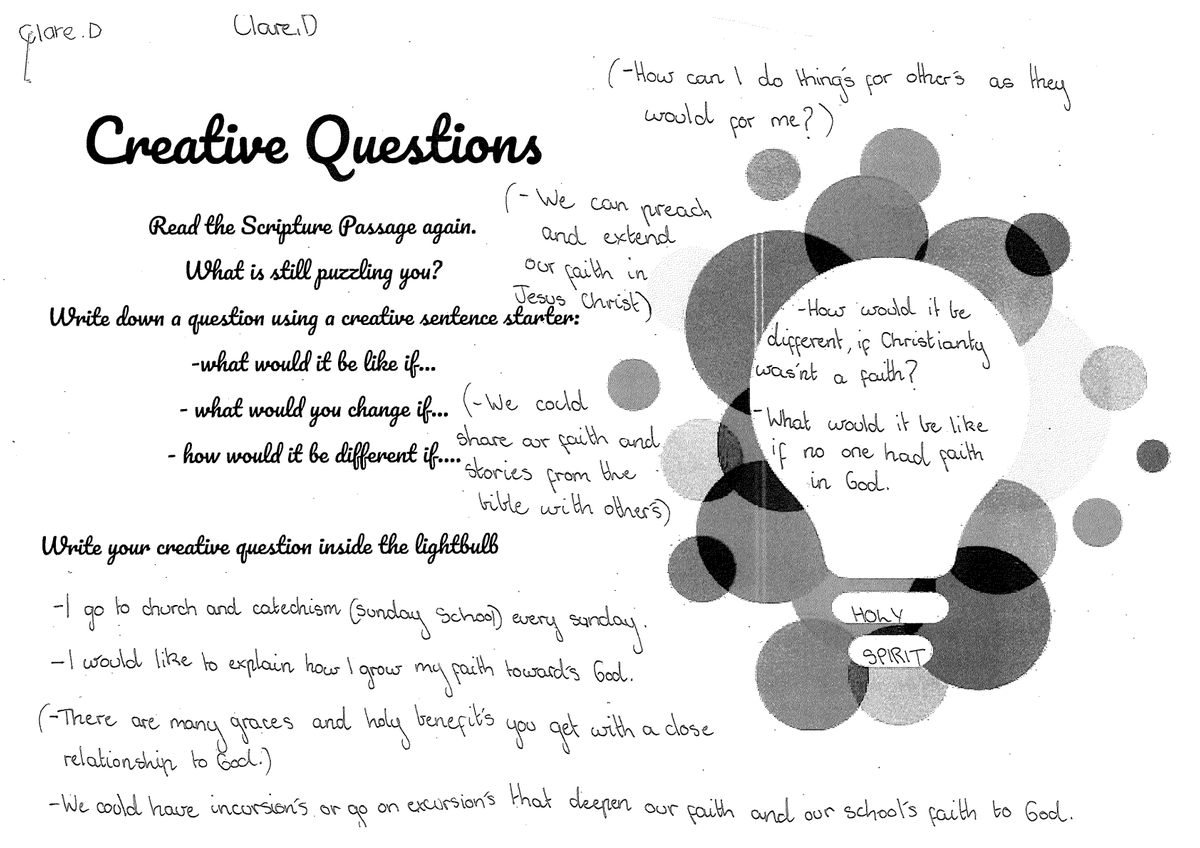 Clare.D
Clare.D
(-How can I do thing's for other's as they
would for me?)
Creative Questions
(- We can preach
and extend
our faith in
Jesus Christ)
Read the Scripture Passage again.
What is still puzzling you?
Write down a question using a creative sentence starter:
-what would it be like if...
- what would you change if...
- how would it be different if....
(-We could
share our faith and
stories from the
bible with other's)
-How would it be
different, if Christianty
was'nt a faith?
-What would it be like
if no one had faith
in God.
HOLY
SPIRIT
Write your creative question inside the lightbulb
-I go to church and catechism (Sunday School) every sunday.
-I would like to explain how I grow my faith toward's God.
(-There are many graces and holy benefit's you get with a close
relationship to God.)
-We could have incursion's or go on excursion's that deepen our faith and our school's faith to God.